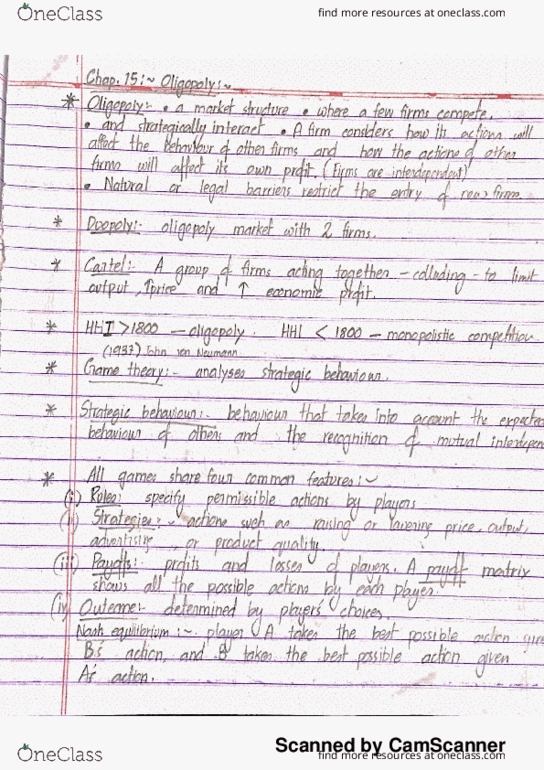 OneClass
find more resources at oneclass.com
Chap. 15:~ Oligopoly:~
* Oligopoly:- • a market structure • where a few firms compete.
• and strategically interact • A firm considers how its actions will
affect the behaviour of other firms and how the actions of other
firms will affect it's own profit. (Firms are interdependent)
• Natural or legal barriers restrict the entry of new firms
* Duopoly:- oligopoly market with 2 firms.
* Cartel:- A group of firms acting together - colluding - to limit
output, ↑price and ↑ economic profit.
* HHI >1800 - oligopoly. HHI < 1800 - monopolistic competition
(1937) John von Neumann
* Game theory:- analyses strategic behaviour.
* Strategic behaviour:- behaviour that takes into account the expected
behaviour of others and the recognition of mutual interdepen
* All games share four common features:~
(i) Rules: specify permissible actions by players
(ii) Strategies:~ actions such as raising or lowering price, output,
advertising or product quality.
(iii) Payoffs:- profits and losses of players. A payoff matrix
shows all the possible actions by each player.
(iv) Outcome:- determined by players' choices.
Nash equilibrium:~ player A takes the best possible action give
B's action, and B takes the best possible action given
A's action.
Scanned by CamScanner
OneClass
find more resources at oneclass.com